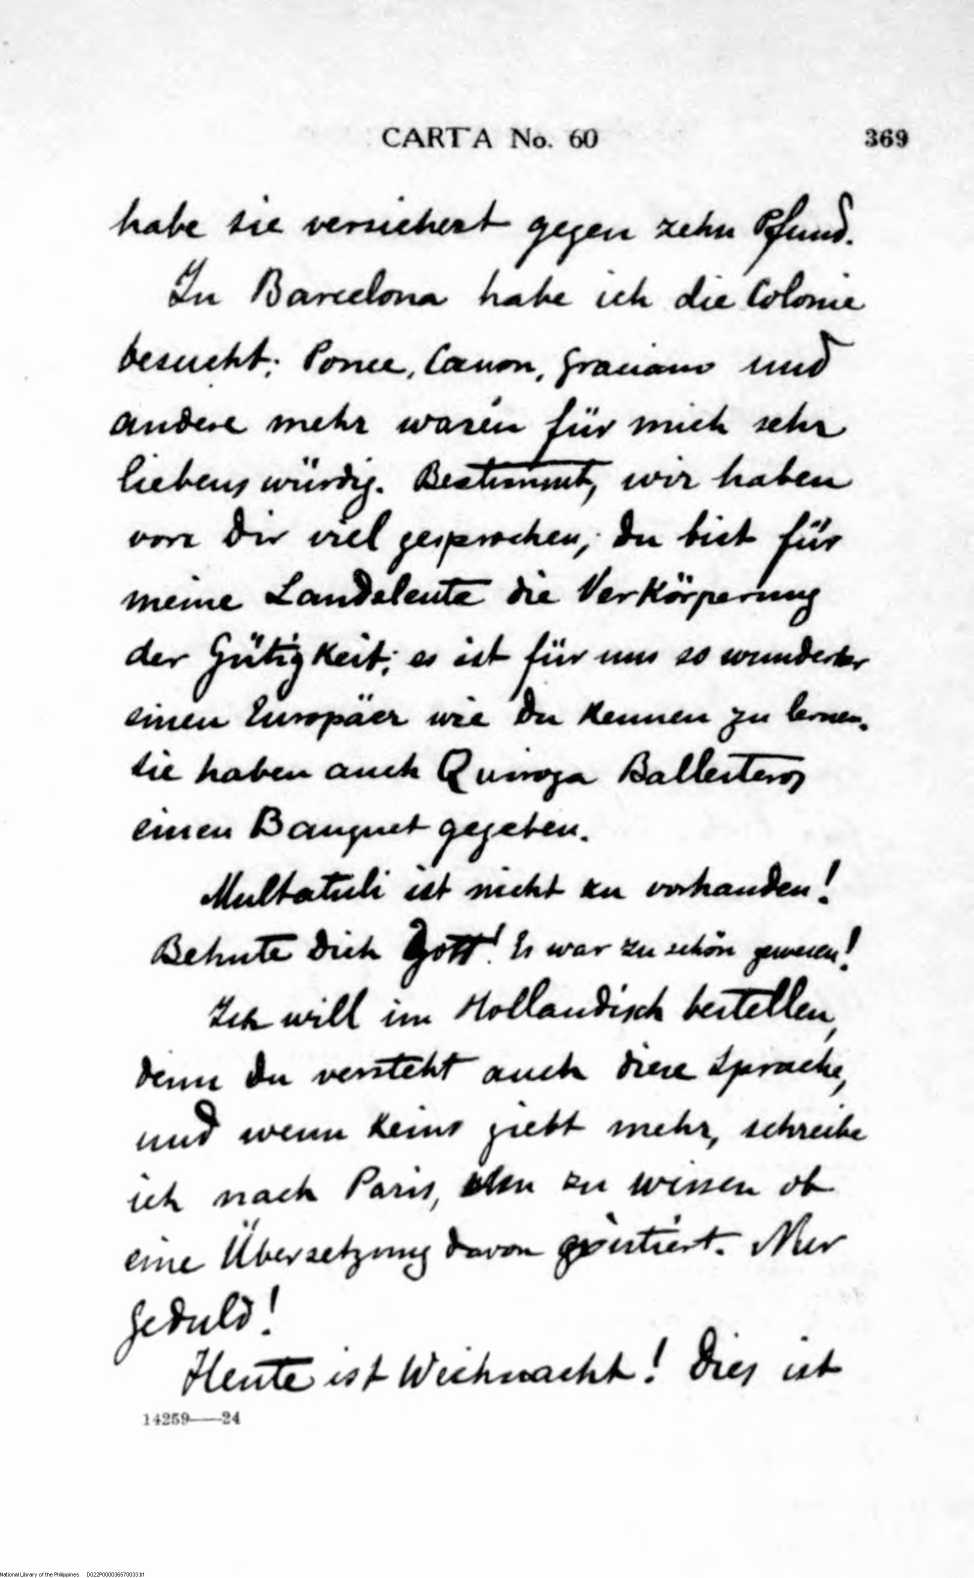 CARTA No. 60 369
habe sie versichert gegen zehn Pfund.
In Barcelona habe ich die Colonie
besucht: Ponce, Canon, Graciano und
andere mehr waren für mich sehr
liebenswürdig. Bestimmt, wir haben
von Dir viel gesprochen; du bist für
meine Landsleute die Verkörperung
der Gütigkeit; es ist für uns so wunderbar
einen Europäer wie Du kennen zu lernen.
Sie haben auch Quiroga Ballesteros
einen Banquet gegeben.
Multatuli ist nicht zu vorhanden!
Behute dich Gott! Es war zu schön gewesen!
Ich will im Hollandisch bestellen,
denn Du versteht auch diese Sprache,
und wenn keins giebt mehr, schreibe
ich nach Paris, zu wissen ob
eine Übersetzung davon existiert. Nur
Geduld!
Heute ist Weihnacht! Dies ist
14259——24
National Library of the Philippines